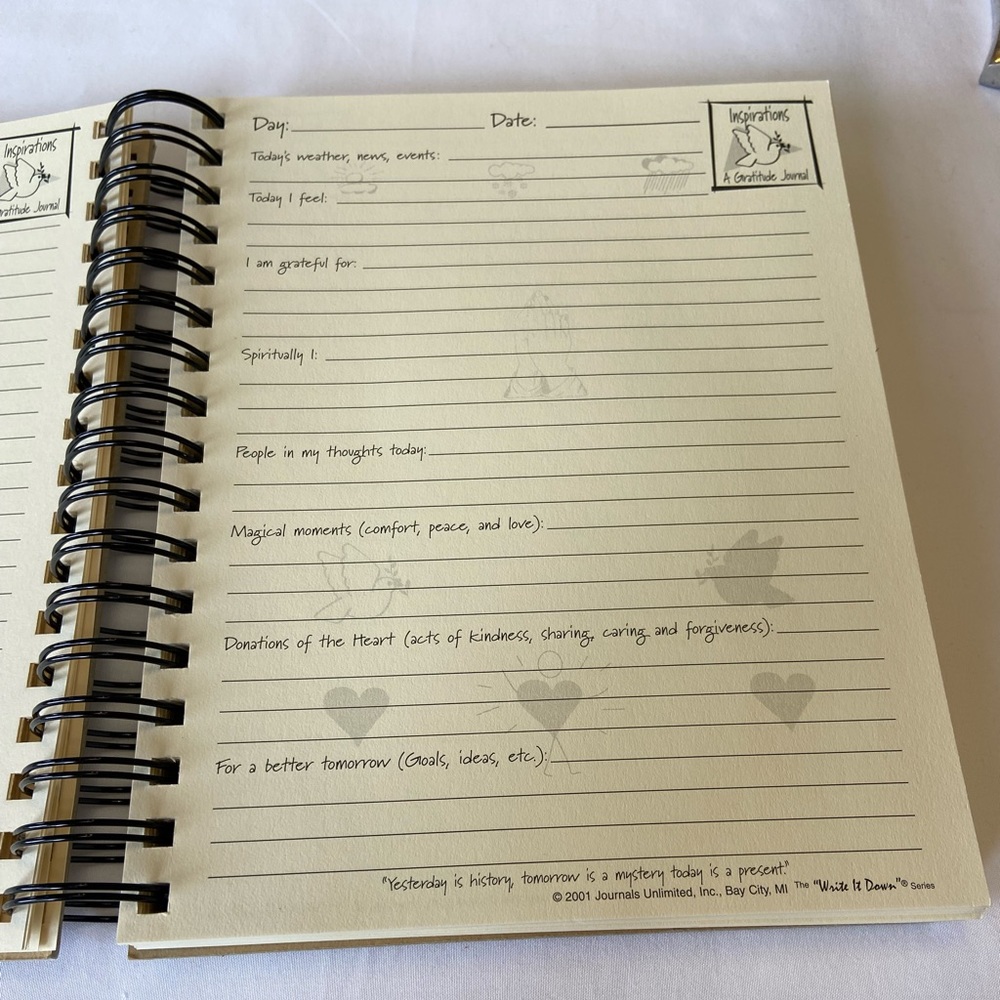 Inspirations
Gratitude Journal
Day:
Date:
Inspirations
A Gratitude Journal
Today's weather, news, events:
Today I feel:
I am grateful for:
Spiritually I:
People in my thoughts today:
Magical moments (comfort, peace, and love):
Donations of the Heart (acts of kindness, sharing, caring and forgiveness):
For a better tomorrow (Goals, ideas, etc.):
"Yesterday is history, tomorrow is a mystery today is a present."
© 2001 Journals Unlimited, Inc., Bay City, MI The "Write It Down"® Series